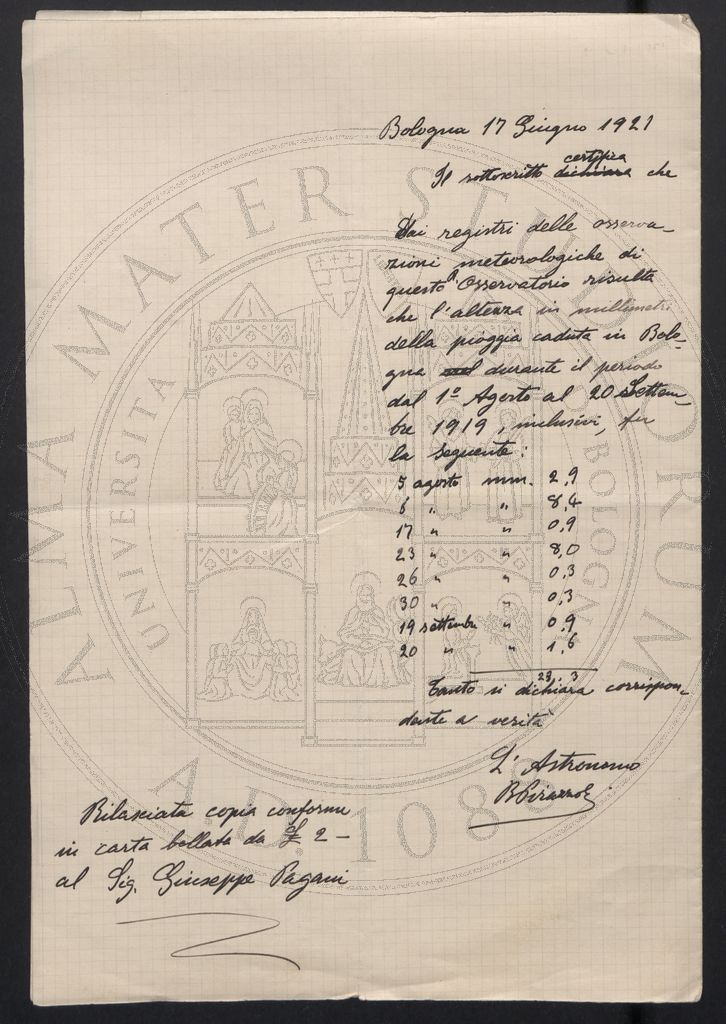 Bologna 17 Giugno 1921
certifica
Il sottoscritto dichiara che
Dai registri delle osserva-
zioni meteorologiche di
questo R Osservatorio risulta
che l'altezza in millimetri
della pioggia caduta in Bolo-
gna nel durante il periodo
dal 1º Agosto al 20 Settem-
bre 1919, inclusivi, fu
la seguente:
5 agosto mm. 2,9
6 " " 8,4
17 " " 0,9
23 " " 8,0
26 " " 0,3
30 " " 0,3
19 settembre " 0,9
20 " " 1,6
23,3
Tanto si dichiara corrispon-
dente a verità
L'Astronomo
Rilasciata copia conforme
in carta bollata da £ 2 -
al Sig. Giuseppe Pagani
ALMA MATER STUDIORUM
UNIVERSITA BOLOGN
A.D. 1088